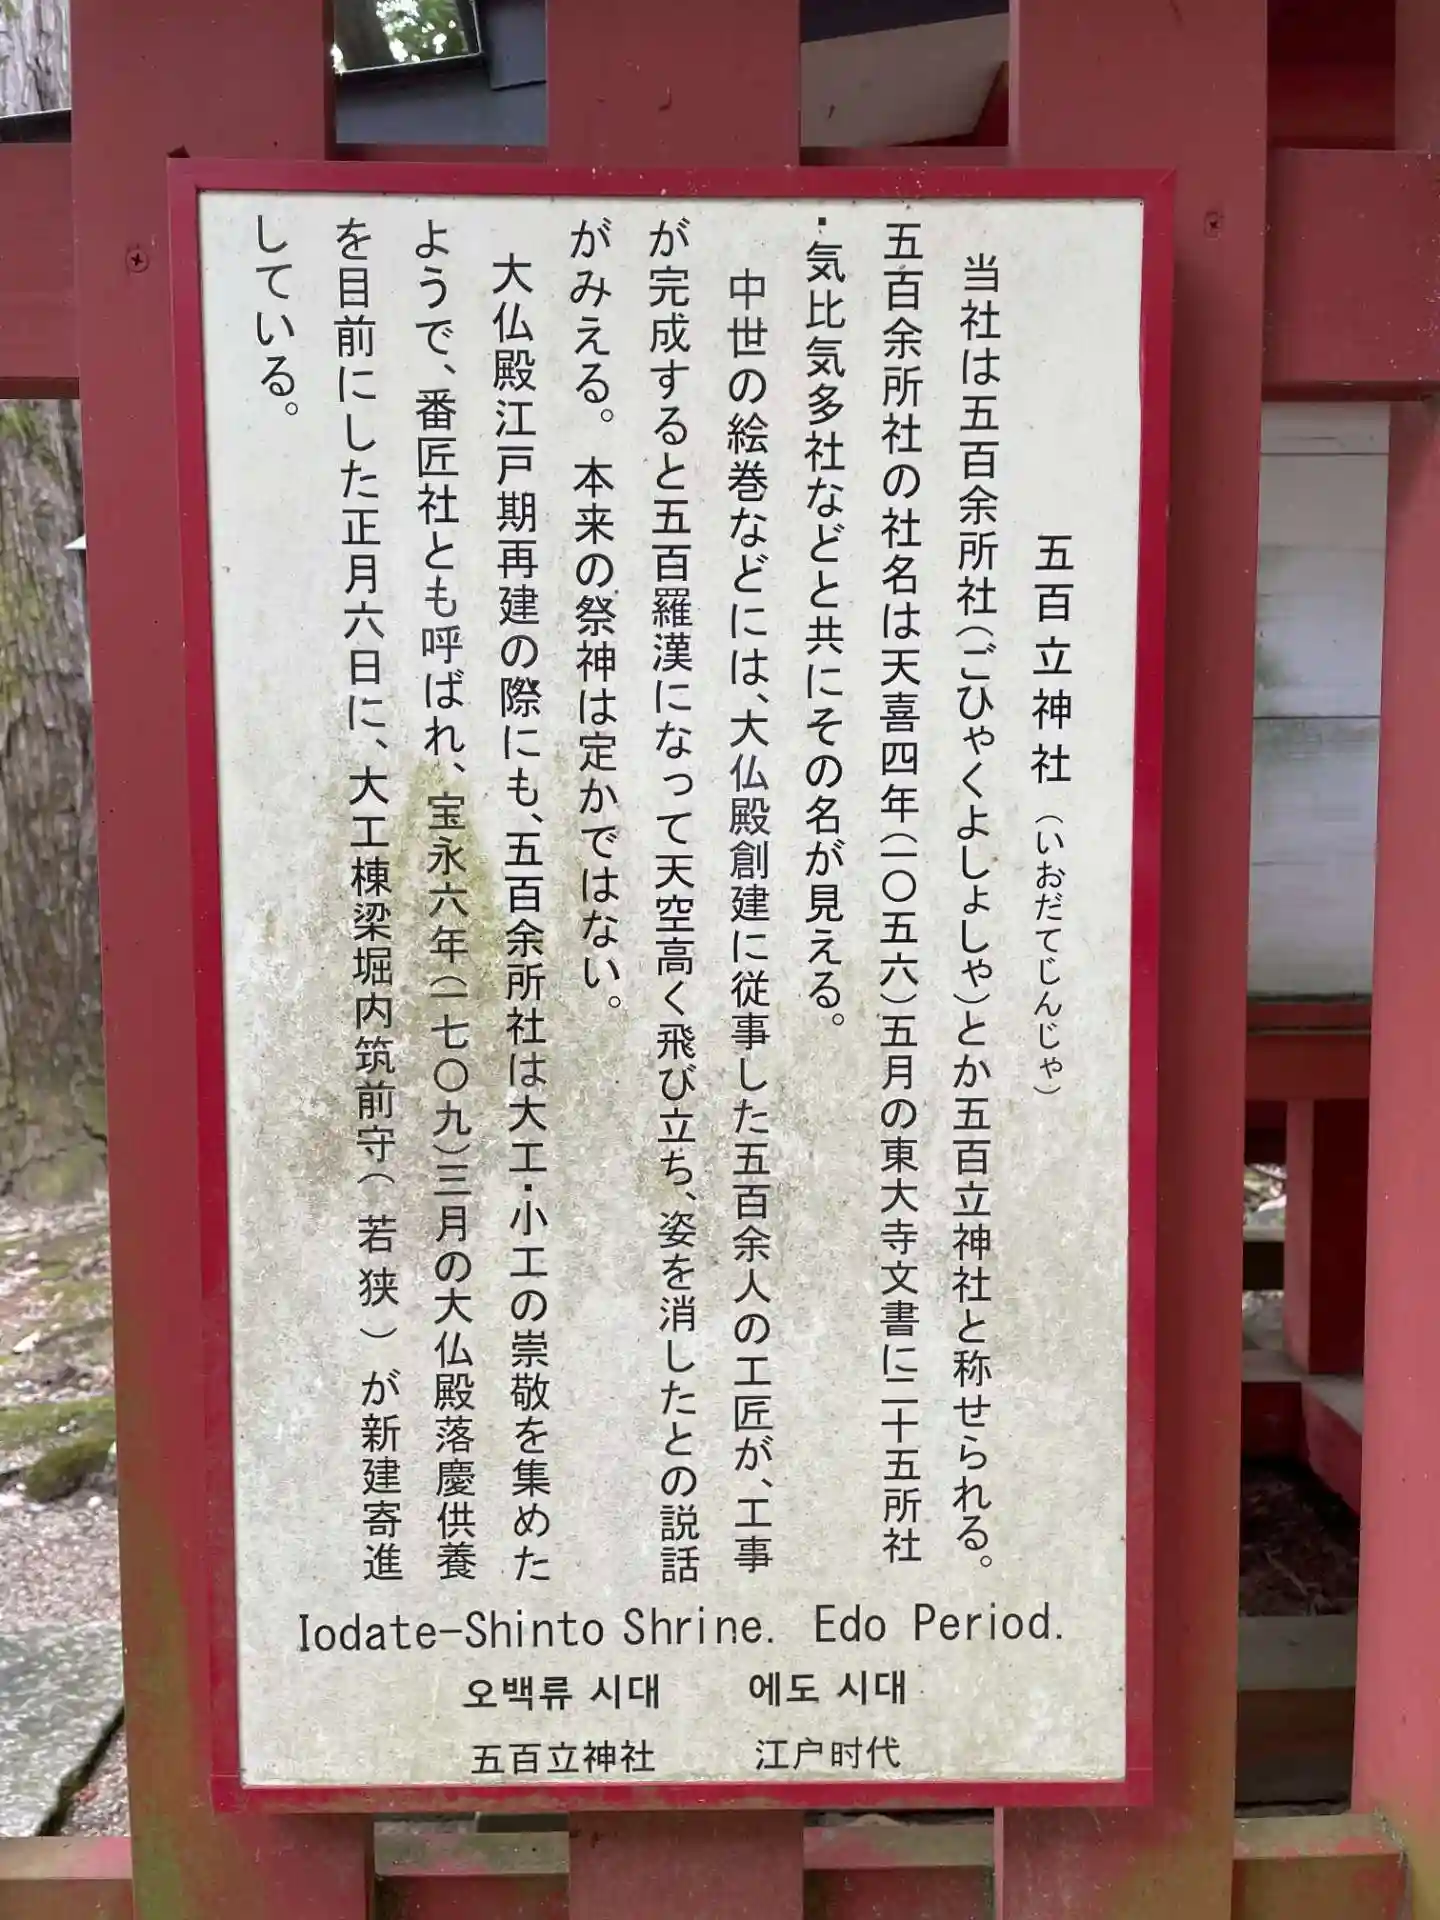 五百立神社（いおだてじんじゃ）
当社は五百余所社（ごひゃくよしょしゃ）とか五百立神社と称せられる。
五百余所社の社名は天喜四年（一〇五六）五月の東大寺文書に二十五所社
・気比気多社などと共にその名が見える。
中世の絵巻などには、大仏殿創建に従事した五百余人の工匠が、工事
が完成すると五百羅漢になって天空高く飛び立ち、姿を消したとの説話
がみえる。本来の祭神は定かではない。
大仏殿江戸期再建の際にも、五百余所社は大工・小工の崇敬を集めた
ようで、番匠社とも呼ばれ、宝永六年（一七〇九）三月の大仏殿落慶供養
を目前にした正月六日に、大工棟梁堀内筑前守（若狭）が新建寄進
している。
Iodate-Shinto Shrine. Edo Period.
오백류 시대 에도 시대
五百立神社 江户时代